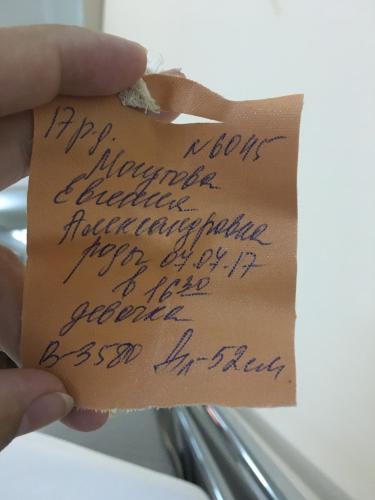 17 р.д.
№ 6045
Евгения
Александровна
роды 07.07.17
в 16 30
девочка
В-3580 Дл-52см.